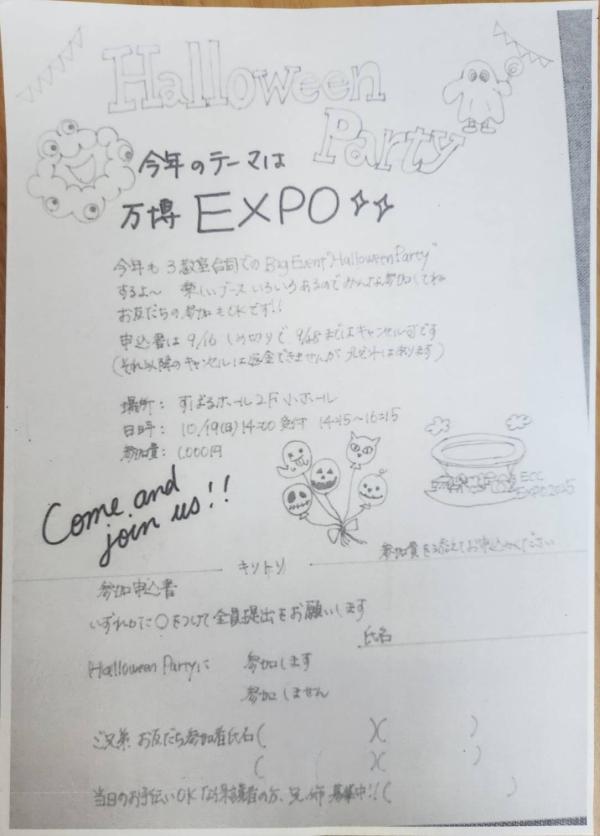 Halloween
Party
今年のテーマは
万博 EXPO
今年も3教室合同でのBig Event "Halloween Party"
するよ〜 楽しいブースいろいろあるのでみんな参加してね
お友だちの参加もOKです!!
申込書は9/16しめ切りで 9/28まではキャンセル可です
(それ以降のキャンセルは返金できませんがプレゼントはあります)
場所: すばるホール2F 小ホール
日時: 10/19(日) 14:00受付 14:15〜16:15
参加費: 1,000円
Come and
join us!!
ECC
EXPO2025
参加費を添えてお申込みください
キリトリ
参加申込書
いずれかに○をつけて全員提出をお願いします
氏名
Halloween Partyに 参加します
参加しません
ご兄弟、お友だち参加者氏名( )( )
( )( )
当日のお手伝いOKな保護者の方、兄姉募集中!( )